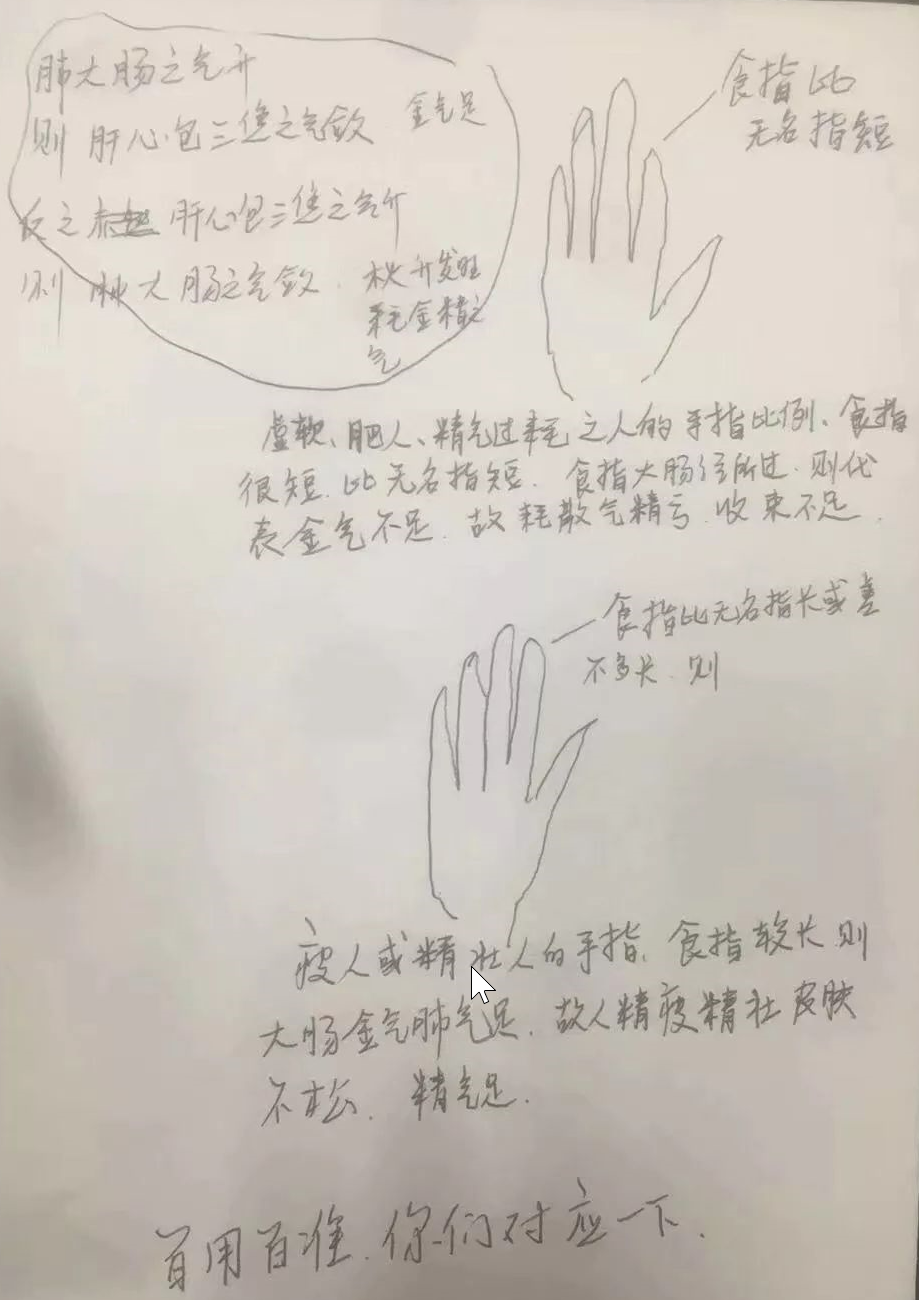 肺大肠之气开
则 肝心包三焦之气敛 金气足
反之 肝心包三焦之气开
则 肺大肠之气敛
木火升发旺
耗金精之
气
食指比
无名指短
虚软、肥人、精气过耗之人的手指比例、食指
很短.比无名指短. 食指大肠经所过.则代
表金气不足.故耗散气精亏.收束不足.
食指比无名指长或差
不多长.则
瘦人或精壮人的手指.食指较长则
大肠金气肺气足.故人精瘦精壮皮肤
不松. 精气足.
百用百准.你们对应一下.